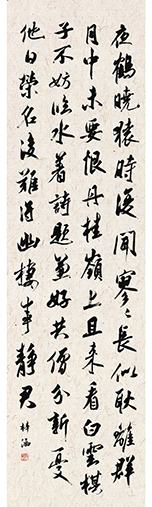 夜鶴曉猿時復聞寥〻長似耿離群
月中未要恨丹桂嶺上且來看白雲棋
子不妨臨水著詩題兼好共僧分新憂
他日榮名後難得幽棲事靜君
梓涵